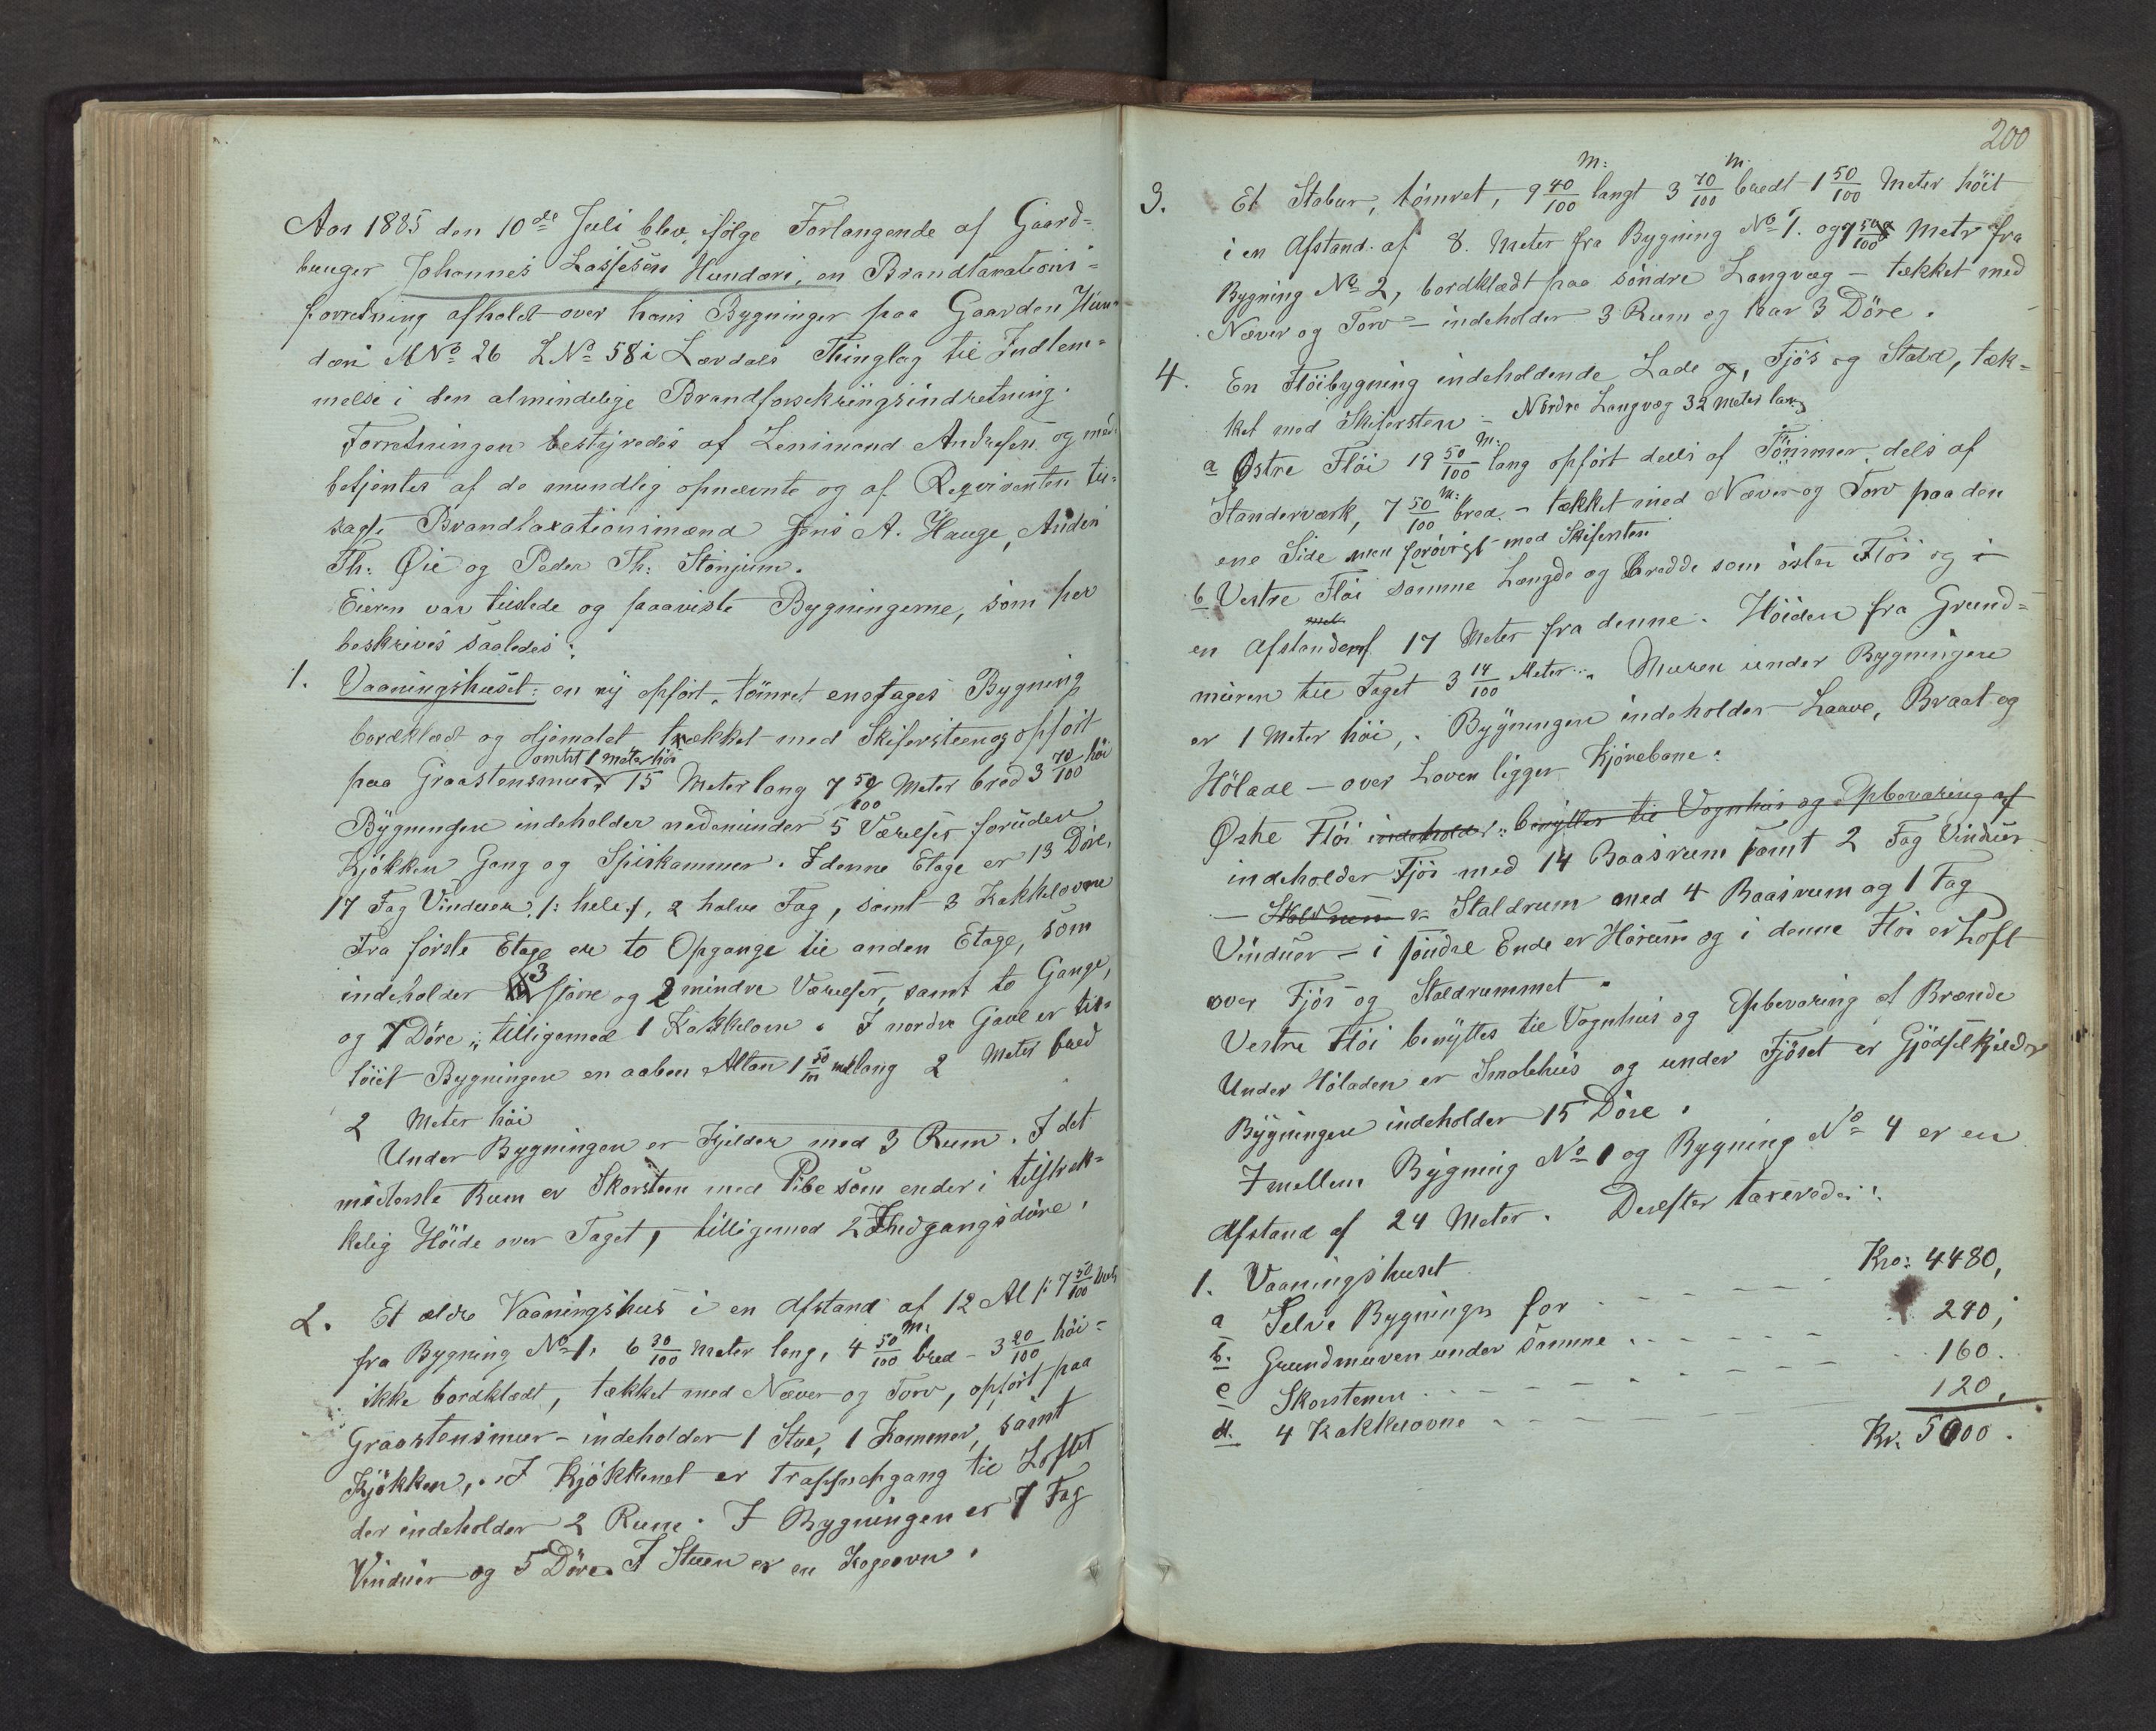 Aar 1885 den 10de Juli blev ifølge Forlangende af Gaard=
bruger Johannes Lassesen Hunderi, en Brandtaxations=
forretning afholdt over hans Bygninger paa Gaarden Hun=
deri M No 26 L No 58 i Lærdals Thinglag til Indlem=
melse i den almindelige Brandforsikringsindretning.
Forretningen bestyredes af Lensmand Andresen og med=
betjentes af de mundlig opnævnte og af Reqvirenten til=
sagte Brandtaxationsmænd Jens A. Hauge, Anders
Th: Øie og Peder Th: Stønjum.
Eieren var tilstede og paaviste Bygningerne, som her
beskrives saaledes:
1. Vaaningshuset: en ny opført, tømret enetages Bygning
bordklædt og oljemalet tækket med Skifersteen og opført
omtrt 1 meter høi
paa Graastensmur, 15 Meter lang 7 50/100 Meter bred 3 70/100 høi
Bygningen indeholder nedenunder 5 Værelser foruden
Kjøkken Gang og Spiskammer. I denne Etage er 13 Døre,
17 Fag Vinduer /: hele :/, 2 halve Fag, samt 3 Kakkelovne
Fra første Etage er to Opgange til anden Etage, som
indeholder 3 større og 2 mindre Værelser, samt to Gange,
og 7 Døre, tilligemed 1 Kakkelovn. I nordre Gavl er til=
føiet Bygningen en aaben Altan 1 50/100 m lang 2 Meter bred
2 Meter høi
Under Bygningen er Kjelder med 3 Rum. I det
midterste Rum er Skorsteen med Pibe som ender i tilstræk=
kelig Høide over Taget, tilligemed 2 Indgangsdøre.
2. Et ældre Vaaningshus i en Afstand af 12 Al /: 7 50/100
fra Bygning No 1, 6 30/100 Meter lang, 4 50/100 m: bred - 3 20/100 høi=
ikke bordklædt, tækket med Næver og Torv, opført paa
Graastensmur - indeholder 1 Stue, 1 Kammer, samt
Kjøkken, . I Kjøkkenet er Trappeopgang til Loftet
der indeholder 2 Rum. I Bygningen er 7 Fag
Vinduer og 5 Døre. I Stuen er en Kogeovn.
200
3. Et Stabur, tømret, 9 40/100 m: langt 3 70/100 m. bredt 1 50/100 Meter høit
i en Afstand af 8. Meter fra Bygning No 1. og 7 50/100 Metr fra
Bygning No 2, bordklædt paa søndre Langvæg - tækket med
Næver og Torv - indeholder 3 Rum og har 3 Døre.
4. En Fløibygning indeholdende Lade og, Fjøs og Stald, tæk=
ket med Skifersten - Nordre Langvæg 32 meter lang
a Østre Fløi 19 50/100 m: lang opført deels af Tømmer, dels af
Standerværk, 7 50/100 m: bred. - tækket med Næver og Torv paa den
ene Side men forøvrigt med Skifersten
b Vestre Fløi samme Længde og Bredde som østre Fløi og i
en Afstand af 17 Meter fra denne. Høiden fra Grund=
muren til Taget 3 14/100 Meter. Muren under Bygningen
er 1 Meter høi,. Bygningen indeholder Laave, Braat og
Hølade - over Loven ligger Kjørebane.
Østre Fløi indeholder: benyttes til Vognhus og Opbevaring af
indeholder Fjøs med 14 Baasrum samt 2 Fag Vinduer
- Staldrum Staldrum med 4 Baasrum og 1 Fag
Vinduer - i søndre Ende er Hørum og i denne Fløi er Loft
over Fjøs og Staldrummet.
Vestre Fløi benyttes til Vognhus og Opbevaring af Brænde
Under Høladen er Smalehus og under Fjøset er Gjødselkjelder
Bygningen indeholder 15 Døre.
Imellem Bygning No 1 og Bygning No 4 er en
Afstand af 24 Meter. Derefter taxeredes:
1. Vaaningshuset
a Selve Bygningen for - - - - - Kro: 4480,
b. Grundmuren under samme . - - - - - - 240,
c Skorstenen . - - - - - - - 160.
d. 4 Kakkelovne - - - - - - - 120,
Kr. 5000.